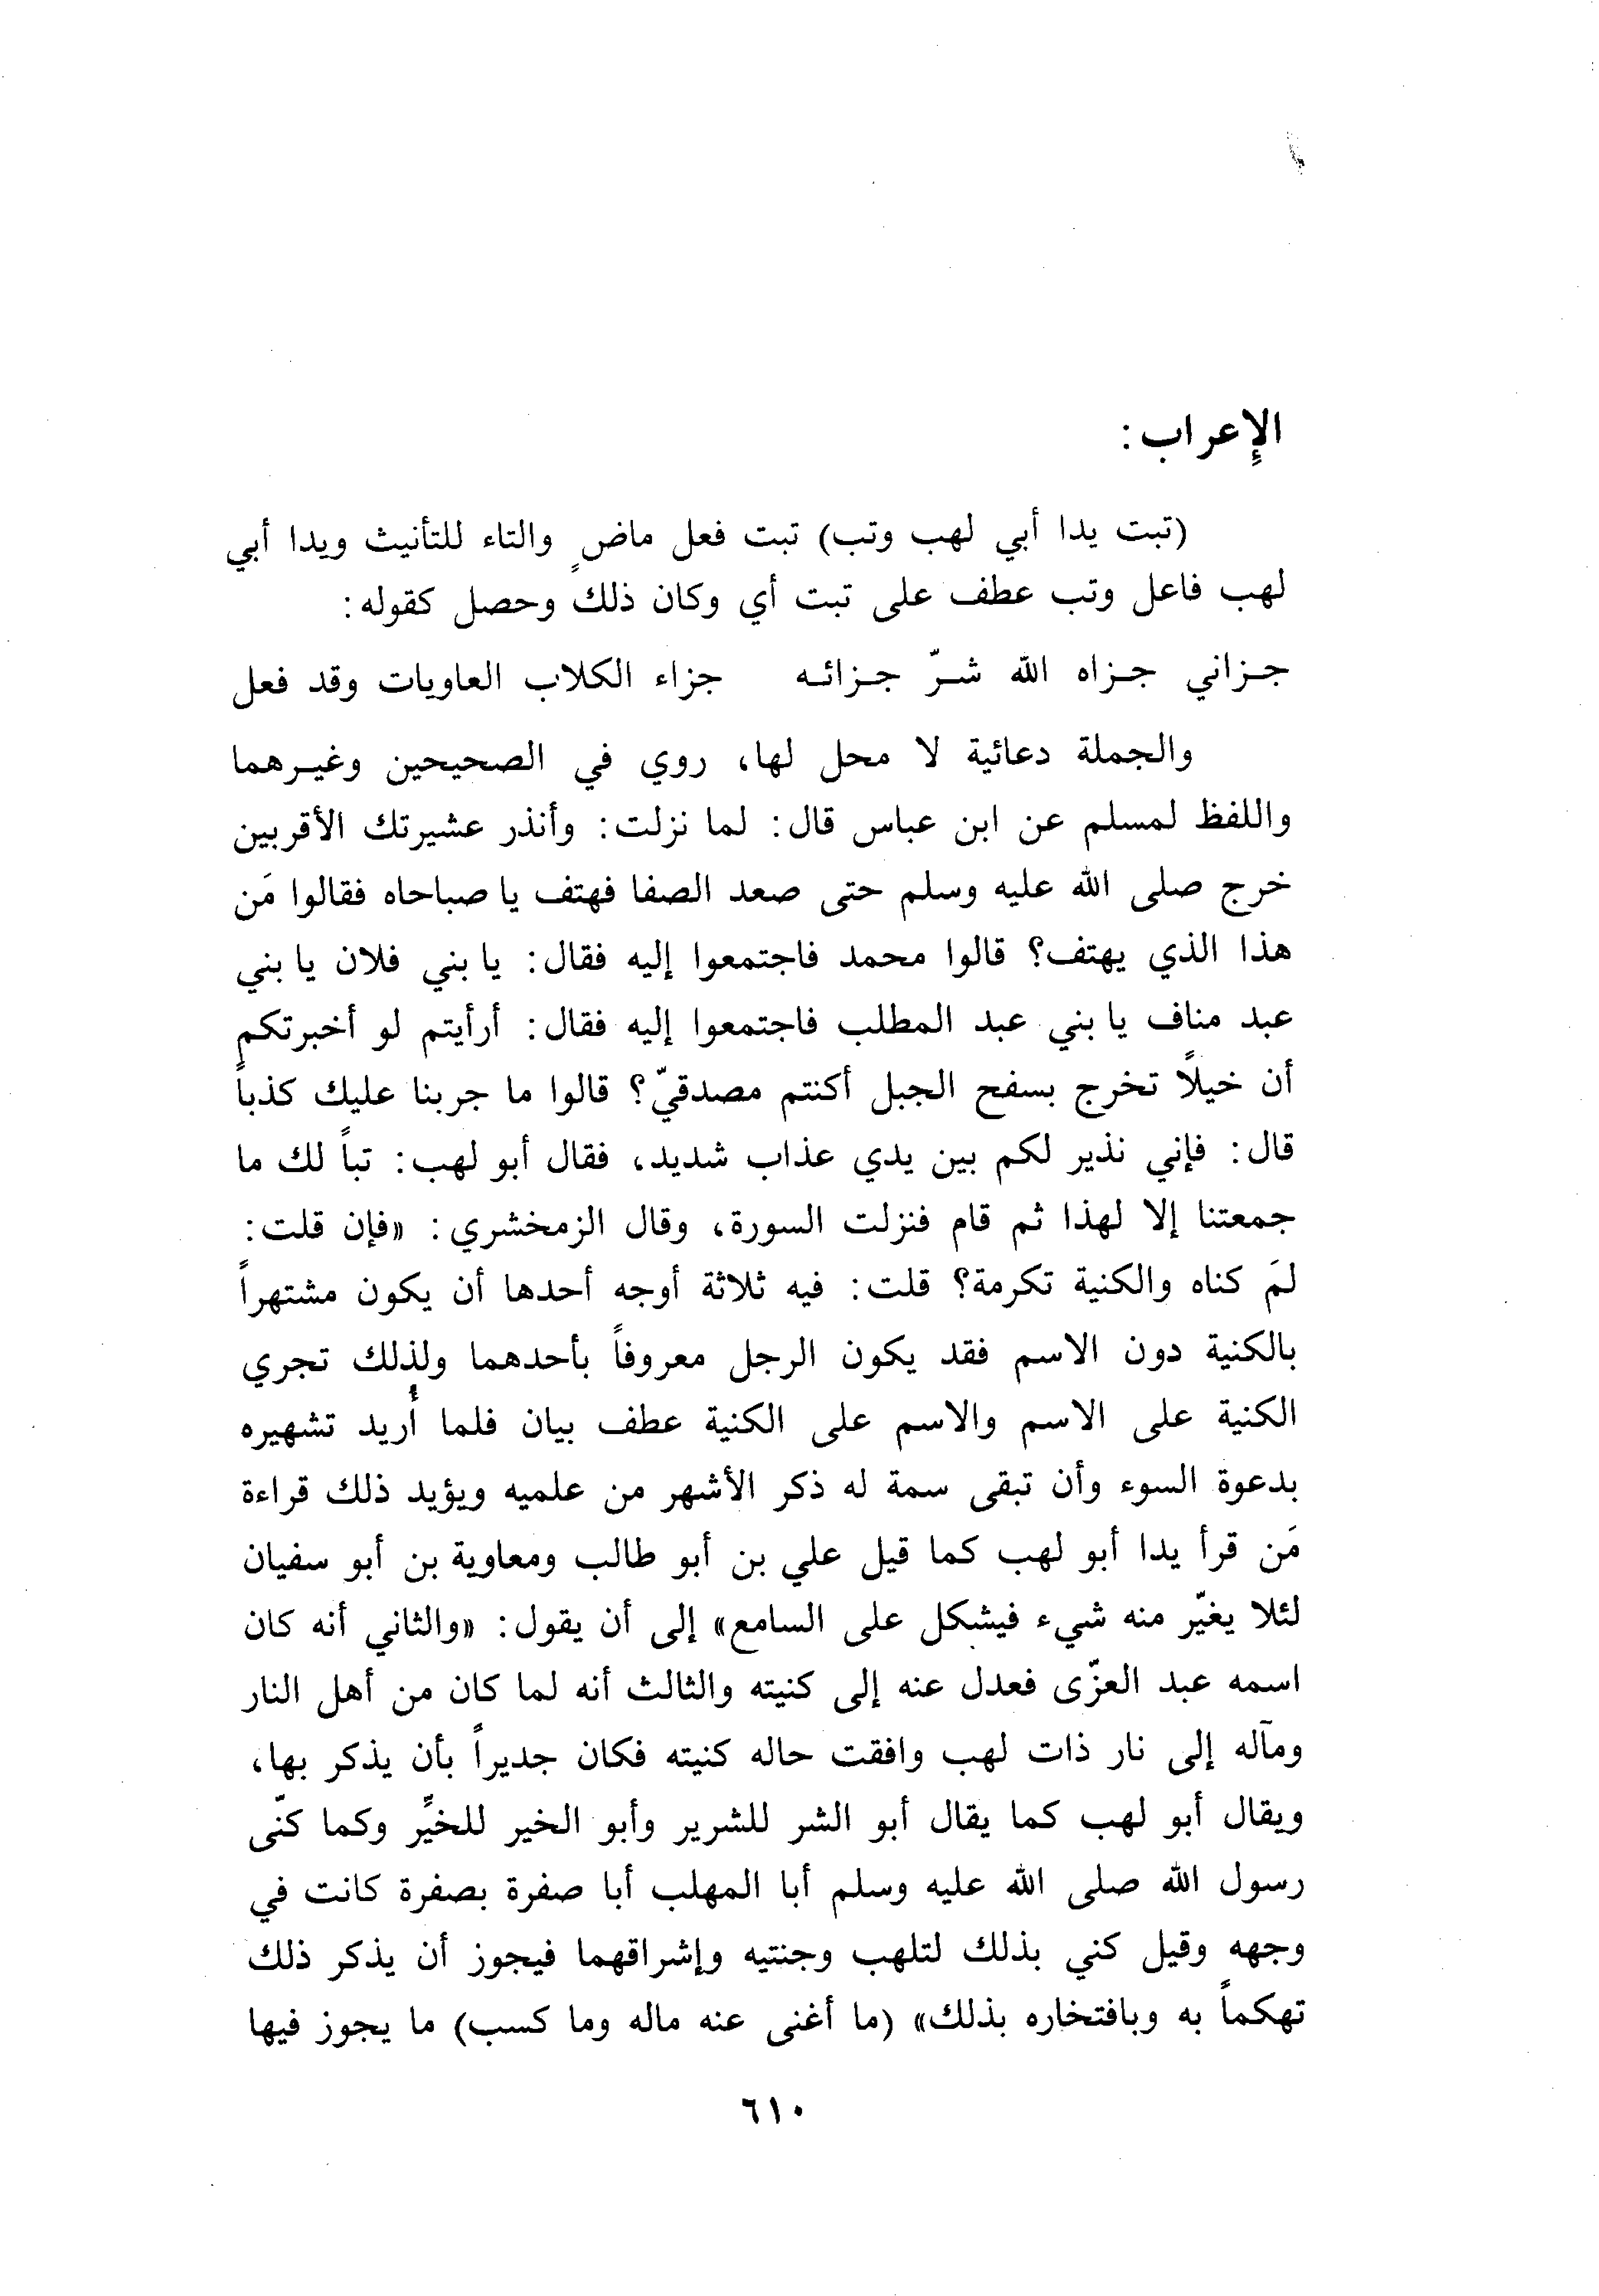 الإعراب:
(تبت يدا أبي لهب وتب) تبت فعل ماضٍ والتاء للتأنيث ويدا أبي
لهب فاعل وتب عطف على تبت أي وكان ذلك وحصل كقوله:
جـزاني جـزاه الله شـرّ جـزائـه جزاء الكلاب العاويات وقد فعل
والجملة دعائية لا محل لها، روي في الصحيحين وغيـرهما
واللفظ لمسلم عن ابن عباس قال: لما نزلت: وأنذر عشيرتك الأقربين
خرج صلى الله عليه وسلم حتى صعد الصفا فهتف يا صباحاه فقالوا مَن
هذا الذي يهتف؟ قالوا محمد فاجتمعوا إليه فقال: يا بني فلان يا بني
عبد مناف يا بني عبد المطلب فاجتمعوا إليه فقال: أرأيتم لو أخبرتكم
أن خيلًا تخرج بسفح الجبل أكنتم مصدقيّ؟ قالوا ما جربنا عليك كذباً
قال: فإني نذير لكم بين يدي عذاب شديد، فقال أبو لهب: تباً لك ما
جمعتنا إلا لهذا ثم قام فنزلت السورة، وقال الزمخشري: «فإن قلت:
لمَ كناه والكنية تكرمة؟ قلت: فيه ثلاثة أوجه أحدها أن يكون مشتهراً
بالكنية دون الاسم فقد يكون الرجل معروفاً بأحدهما ولذلك تجري
الكنية على الاسم والاسم على الكنية عطف بيان فلما أُريد تشهيره
بدعوة السوء وأن تبقى سمة له ذكر الأشهر من علميه ويؤيد ذلك قراءة
مَن قرأ يدا أبو لهب كما قيل علي بن أبو طالب ومعاوية بن أبو سفيان
لئلا يغيّر منه شيء فيشكل على السامع» إلى أن يقول: «والثاني أنه كان
اسمه عبد العزّى فعدل عنه إلى كنيته والثالث أنه لما كان من أهل النار
ومآله إلى نار ذات لهب وافقت حاله كنيته فكان جديراً بأن يذكر بها،
ويقال أبو لهب كما يقال أبو الشر للشرير وأبو الخير للخيِّر وكما كنّى
رسول الله صلى الله عليه وسلم أبا المهلب أبا صفرة بصفرة كانت في
وجهه وقيل كني بذلك لتلهب وجنتيه وإشراقهما فيجوز أن يذكر ذلك
تهكماً به وبافتخاره بذلك» (ما أغنى عنه ماله وما كسب) ما يجوز فيها
٦١٠